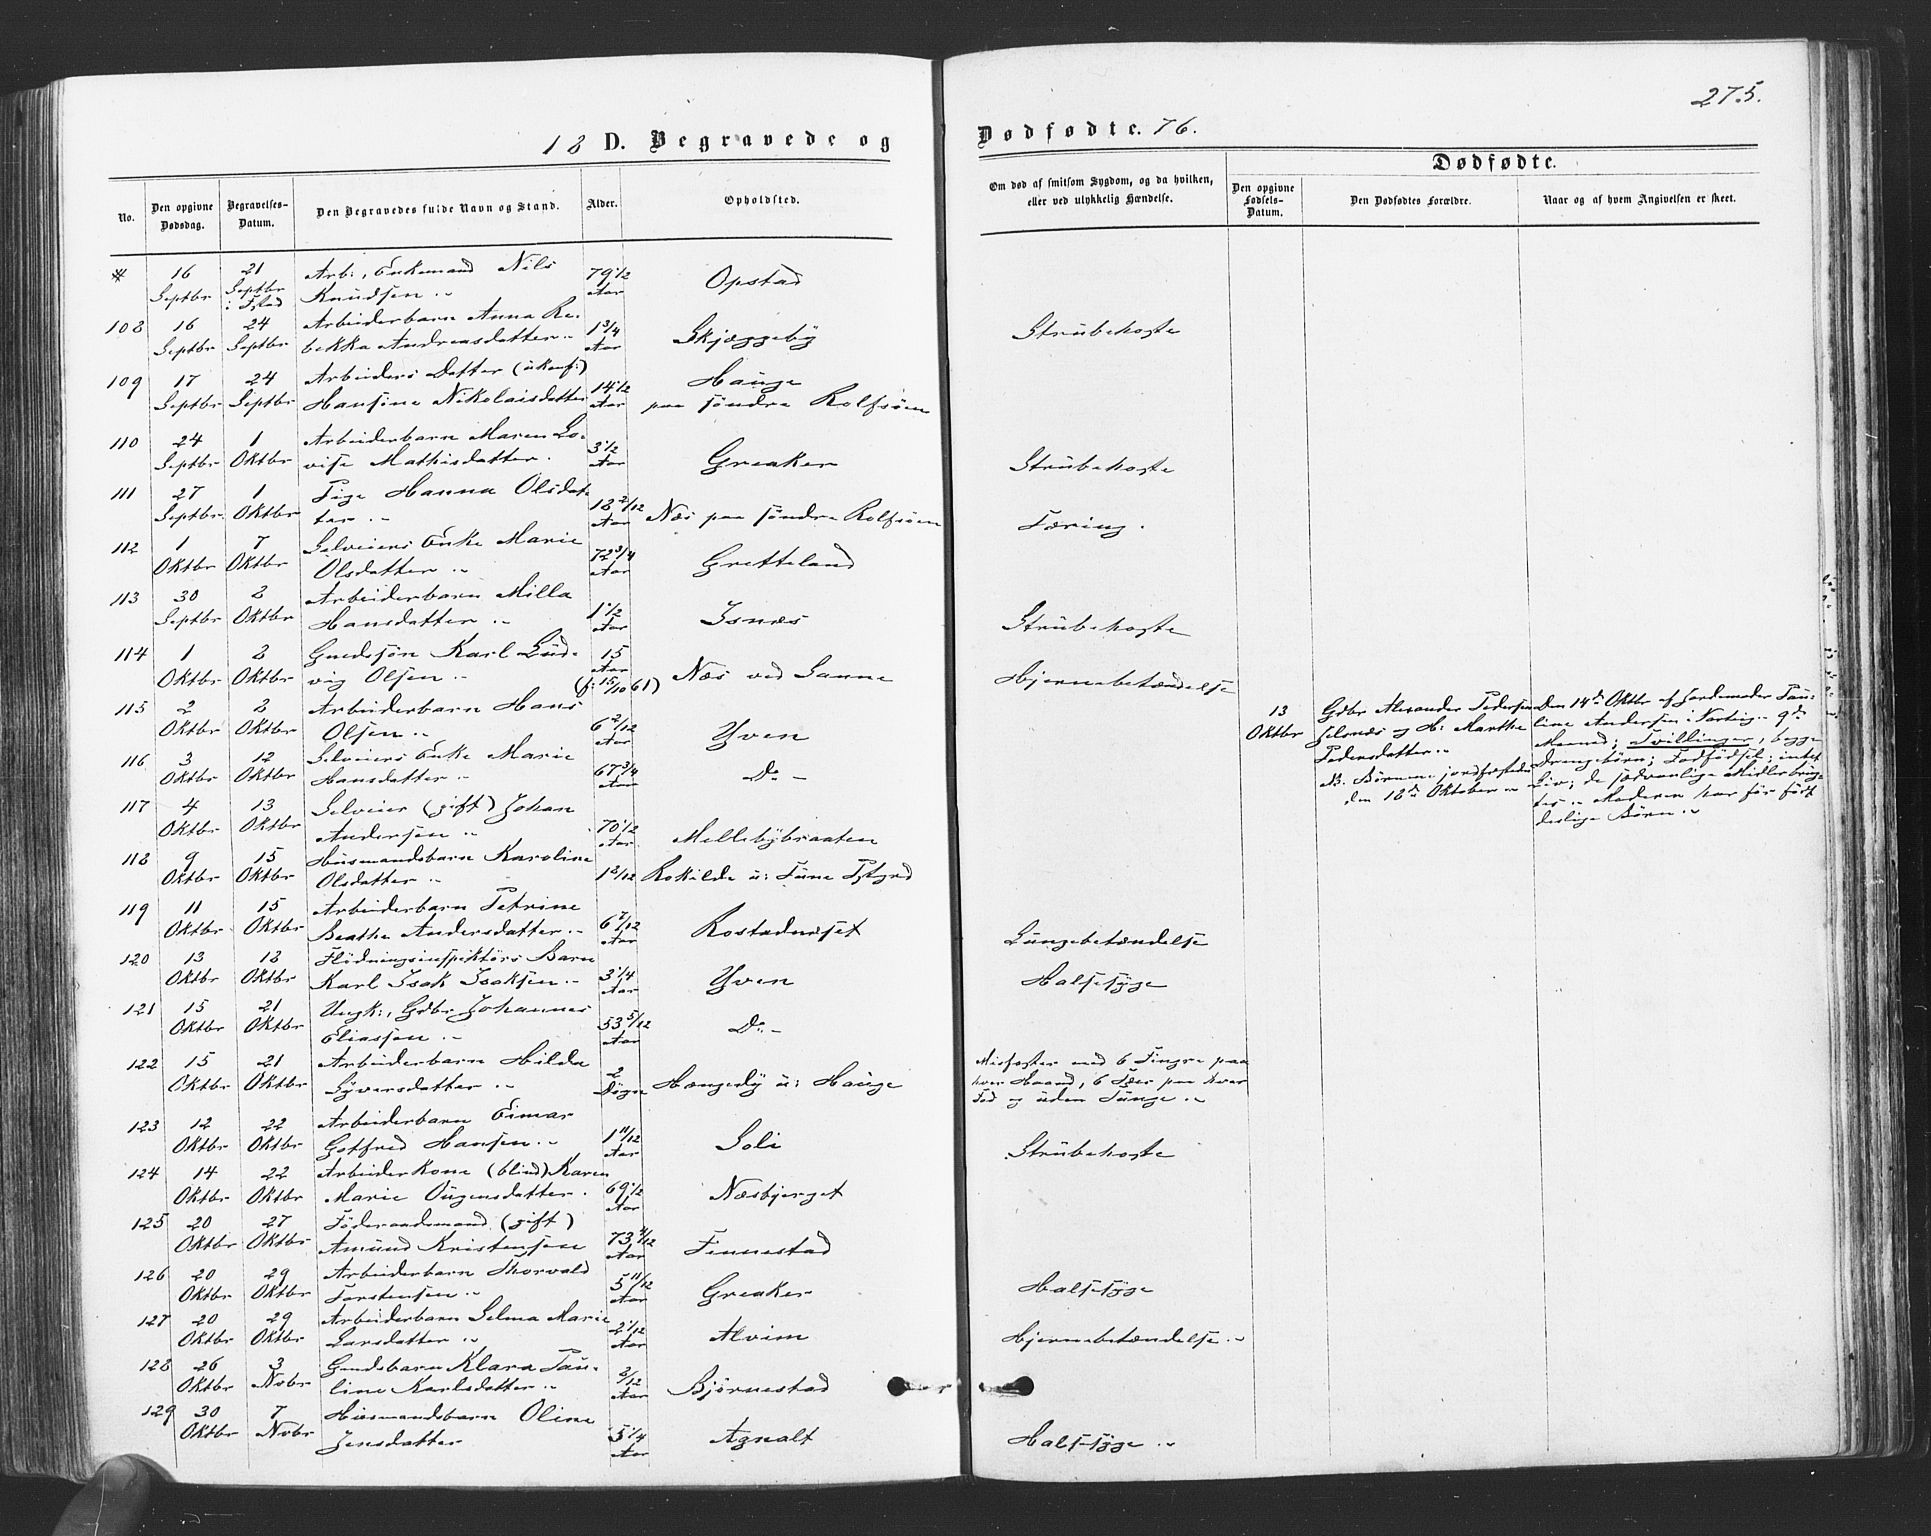 275.
18 D. Begravede og Dødfødte. 76.
Dødfødte.
No.
Den opgivne Dødsdag.
Begravelses-Datum.
Den Begravedes fulde Navn og Stand.
Alder.
Opholdsted.
Om død af smitsom Sygdom, og da hvilken, eller ved ulykkelig Hændelse.
Den opgivne Fødsels-Datum.
Den Dødfødtes Forældre.
Naar og af hvem Angivelsen er skeet.
* 16 Septbr 21 Septbr Arb:, Enkemand Nils Knudsen 79 1/2 Aar Opstad
108 16 Septbr 24 Septbr Arbeiderbarn Anna Rebekka Andreasdatter 1 3/4 Aar Skjæggeby Strubehoste
109 17 Septbr 24 Septbr Arbeiders Datter (ukonf:) Hansine Nikolaisdatter 14 1/2 Aar Hauge paa søndre Rolfsøen
110 24 Septbr 1 Oktbr Arbeiderbarn Maren Lovise Mathisdatter. 3 1/2 Aar Greaker Strubehoste
111 27 Septbr. 1 Oktbr Pige Hanna Olsdatter 18 2/12 Aar Næs paa søndre Rolfsøen Tæring.
112 1 Oktbr 7 Oktbr Selveiers Enke Marie Olsdatter 72 3/4 Aar Gretteland
113 30 Septbr 8 Oktbr Arbeiderbarn Milla Hansdatter 1 1/2 Aar Isnæs Strubehoste
114 1 Oktbr 8 Oktbr Gaardssøn Karl Ludvig Olsen 15 Aar (f: 15/10 61) Næs ved Sanne Hjernebetændelse
115 2 Oktbr 8 Oktbr Arbeiderbarn Hans Olsen 6 2/12 Aar Yven
116 3 Oktbr 12 Oktbr Selveiers Enke Marie Hansdatter 67 3/4 Aar Do -
117 4 Oktbr 13 Oktbr Selveier (gift) Johan Andersen 70 1/2 Aar. Mellebybraaten
118 9 Oktbr 15 Oktbr Husmandsbarn Karoline Olsdatter Rokilde u: Tune
119 11 Oktbr 15 Oktbr Arbeiderbarn Petrine Beathe Andersdatter 6 7/12 Aar Rostadneset Lungebetændelse
120 13 Oktbr 18 Oktbr Flødningsinspektørs Barn Karl Isak Isaksen 3 1/4 Aar Yven Halssyge
121 15 Oktbr 21 Oktbr Ungk:, Gdbr Johannes Eliassen 53 5/12 Aar Do -
122 15 Oktbr 21 Oktbr Arbeiderbarn Hilda Syversdatter 2 Døgn Hængedy u: Hauge Misfoster med 6 Fingre paa hver Haand, 6 Tæer paa hver Fod og uden Tunge
123 12 Oktbr 22 Oktbr Arbeiderbarn Eimar Gotfred Hansen 1 11/12 Aar Soli Strubehoste
124 14 Oktbr 22 Oktbr Arbeiderkone (blind) Karen Marie Ougensdatter. 69 1/2 Aar. Næsbjerget
125 20 Oktbr 27 Oktbr Føderaadsmand (gift) Amund Kristensen 73 4/12 Aar Finnestad
126 20 Oktbr 29 Oktbr Arbeiderbarn Thorvald Torstensen 5 11/12 Aar Greaker Halssyge
127 20 Oktbr 29 Oktbr Arbeiderbarn Selma Marie Larsdatter 2 1/12 Aar Alvim Hjernebetændelse
128 26 Oktbr 3 Novbr Gaardsbarn Klara Pauline Karlsdatter 2/12 Aar Bjørnestad
129 30 Oktbr 7 Novbr Husmandsbarn Oline Jensdatter 5 1/4 Aar Agnalt Halssyge
13 Oktbr
Gdbr Alexander Pedersen
Selsnæs og H: Marthe
Pedersdatter
B. Børnene jordfæstedes
den 18de Oktober
Den 14de Oktbr af Jordemoder Pau-
line Andersen i Varteig 9de
Maaned; Tvillinger, begge
Drengebørn; Fodfødsel; intet
Liv; de sædvanlige Midler brug-
tes Moderen har før født
deslige Børn